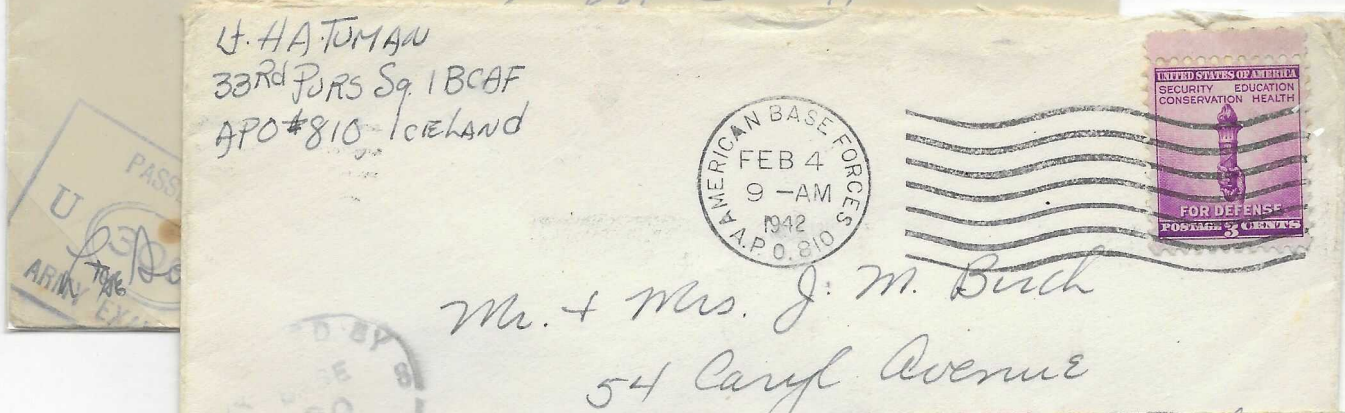 Lt. HA. TUMAN
33Rd PURS Sq. IBCAF
APO #810 ICELANd
AMERICAN BASE FORCES
FEB 4
9 -AM
1942
A.P.O. 810
UNITED STATES OF AMERICA
SECURITY EDUCATION
CONSERVATION HEALTH
FOR DEFENSE
POSTAGE 3 CENTS
Mr. + Mrs. J. M. Birch
54 Caryl Avenue
PASS
U
ARMY EX
D BY